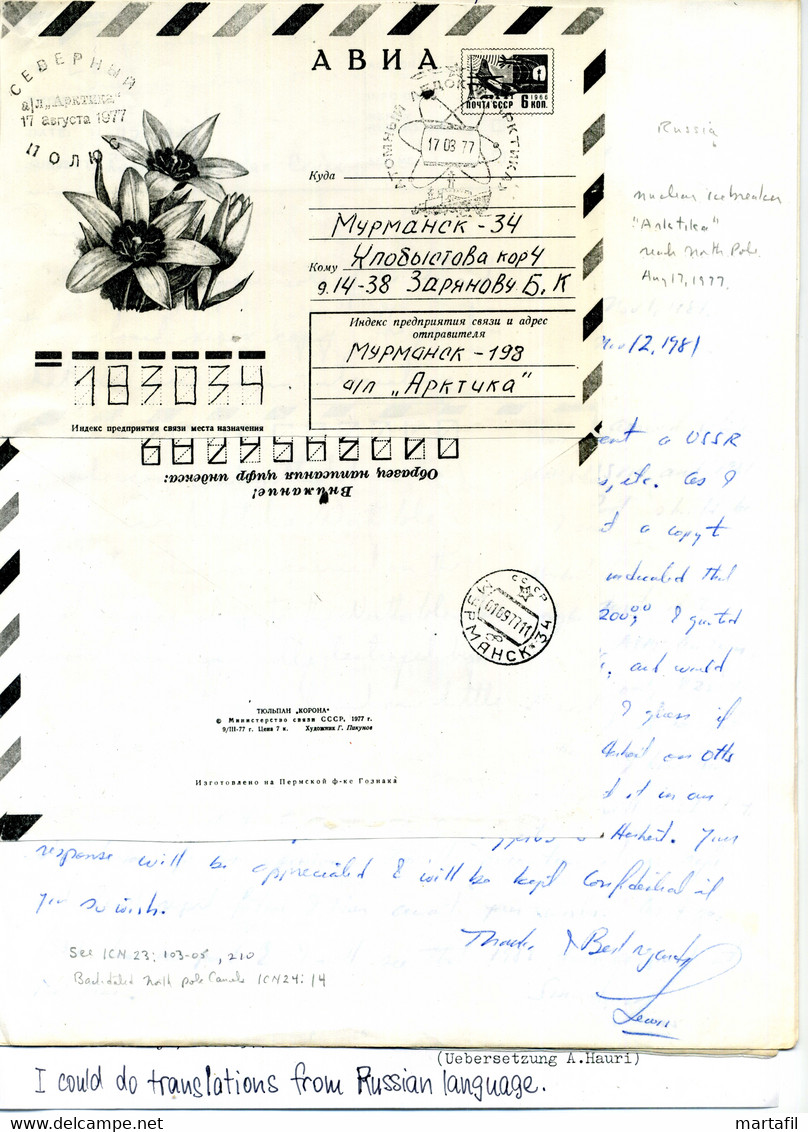 АВИА
СЕВЕРНЫЙ
а/л „Арктика"
17 августа 1977
ПОЛЮС
АТОМНЫЙ ЛЕДОКОЛ АРКТИКА
17 08 77
ПОЧТА СССР 1966 6 КОП.
Куда
Мурманск - 34
Кому Хлобыстова кор 4
д. 14-38 Зарянову Б. К
Индекс предприятия связи и адрес
отправителя
Мурманск - 198
а/л „Арктика"
183034
Индекс предприятия связи места назначения
Russia
nuclear icebreaker
"Arktika"
reach North Pole
Aug 17, 1977
12, 1981
a USSR
etc. As I
a copy
indicated that
200,00 I quoted
and would
I guess if
on Otto
it in an
Herbert. Your
response will be appreciated & will be kept confidential if
you so wish.
Thanks & Best regards
Lewis
Внимание!
Образец написания цифр индекса:
СССР
010977 11
МУРМАНСК 34
ТЮЛЬПАН „КОРОНА"
© Министерство связи СССР, 1977 г.
9/III-77 г. Цена 7 к. Художник Г. Пикунов
Изготовлено на Пермской ф-ке Гознака
See ICN 23: 103-05, 210
Backdated North Pole Cancels ICN 24: 14
(Uebersetzung A.Hauri)
I could do translations from Russian language.
martafil